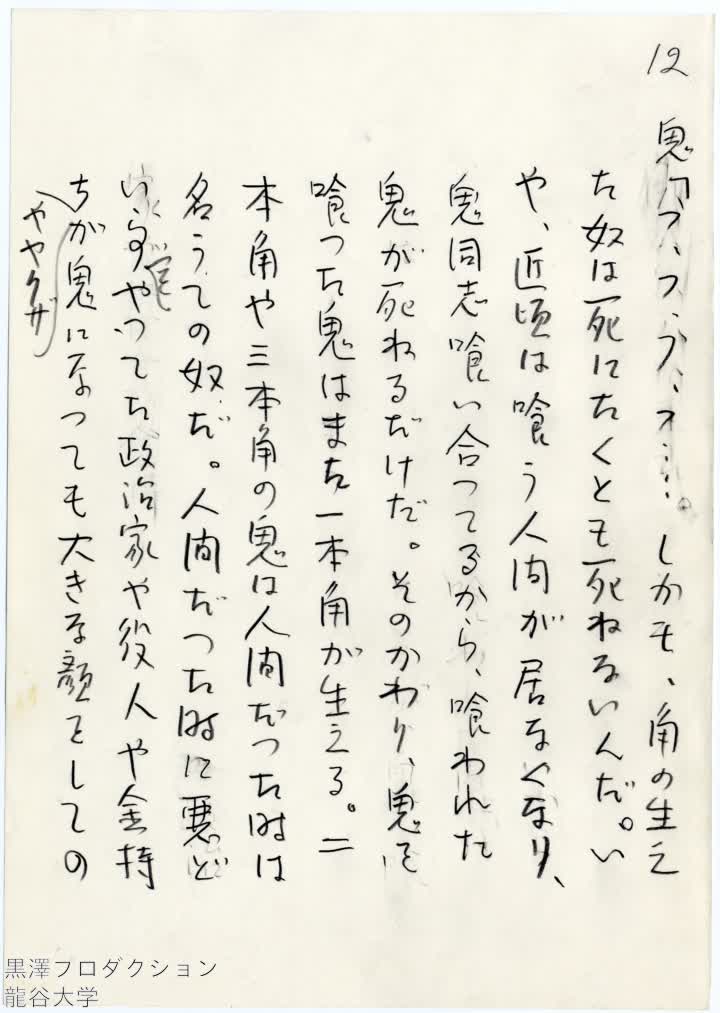 12
鬼「フ、フ、フ、フ……。しかも、角の生え
た奴は死にたくとも死ねないんだ。い
や、近頃は喰う人間が居なくなり、
鬼同志喰い合つてるから、喰われた
鬼が死ねるだけだ。そのかわり、鬼を
喰つた鬼はまた一本角が生える。二
本角や三本角の鬼は人間だつた時は
名うての奴だ。人間だつた時に悪ど
い事やつてた政治家や役人や金持
ちが鬼になつても大きな顔をしての
やヤクザ
黒澤プロダクション
龍谷大学